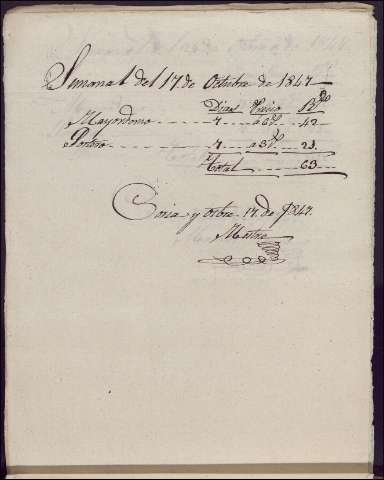 Semanal del 17. de Octubre de 1847
Dias Precio Rs
Mayordomo 7 a 6 42
Portero 7 a 3 21
Total 63
Soria y otbre 17. de 1847.